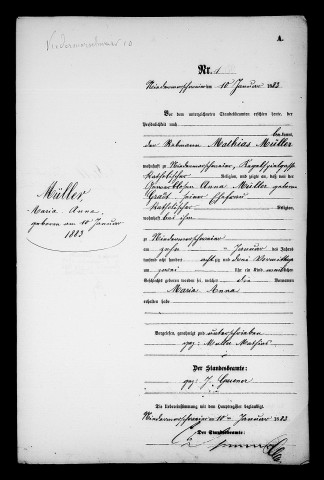 Niedermorschweier 10
A.
Nr. 1
Niedermorschweier am 10 Januar 1883
Vor dem unterzeichneten Standesbeamten erschien heute, der
Persönlichkeit nach
bekannt,
der Rebmann Mathias Müller
wohnhaft zu Niedermorschweier,
katholischer Religion, und zeigte an, daß von der
Anna Müller geborene
seiner Ehefrau
katholischer Religion,
wohnhaft bei ihm
zu Niedermorschweier
am zehn Januar des Jahres
tausend acht hundert achtzig und drei Vormittags
um zwei Uhr ein Kind weiblichen
Geschlechts geboren worden sei, welches die Vornamen
Maria Anna
erhalten habe
Müller,
Maria Anna,
geboren am 10 Januar
1883
Vorgelesen, genehmigt und unterschrieben
gez: Müller Mathias
Der Standesbeamte:
gez: J.
Die Uebereinstimmung mit dem Hauptregister beglaubigt.
Niedermorschweier am 10ten Januar 1883
Der Standesbeamte: